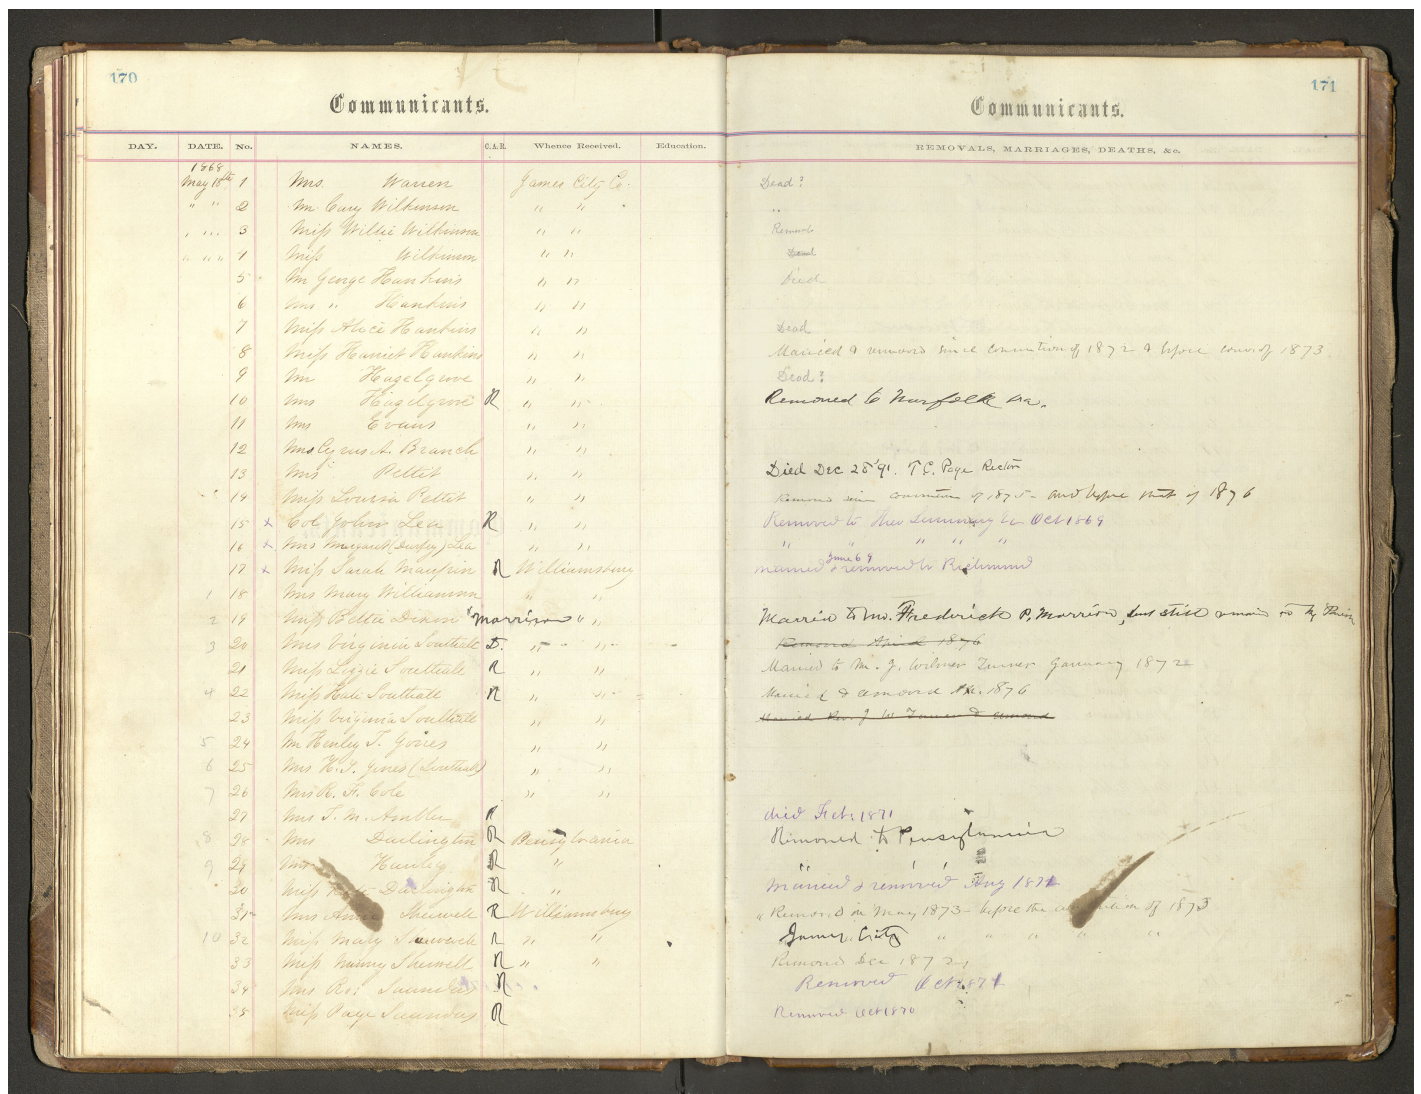 170
Communicants.
DAY. DATE. No. NAMES. C.A.R. Whence Received. Education.
1868
May 18th 1 Mrs. Warren James City Co.
" " 2 Mr. Cary Wilkinson " "
" " " 3 Miss Willie Wilkinson " "
" " " 4 Miss Wilkinson " "
5 Mr George Hankins " "
6 Mrs " Hankins " "
7 Miss Alice Hankins " "
8 Miss Harriet Hankins " "
9 Mr Hazelgrove " "
10 Mrs Hazelgrove R " "
11 Mrs Evans " "
12 Mrs Cyrus A. Branch " "
13 Mrs Pettit " "
14 Miss Louisa Pettit " "
15 x Col John Lea R " "
16 x Mrs Margaret (Durfey) Lea " "
17 x Miss Sarah Maupin R Williamsburg
1 18 Mrs Mary Williamson " "
2 19 Miss Bettie x Morrison " "
3 20 Mrs Virginia Southall D. " "
21 Miss Lizzie Southall R " "
4 22 Miss Kate Southall R " "
23 Miss Virginia Southall " "
5 24 Mr Henley T. Jones " "
6 25 Mrs H. T. Jones (Southall) " "
7 26 Mrs R. H. Cole " "
27 Mrs T. M. Ambler R
8 28 Mrs Darlington R Pensylvania
9 29 Hanley R "
30 Miss Darlington R "
31 Mrs Shewell R Williamsburg
10 32 Miss Mary R " "
33 Miss Nanny Shewell R " "
34 Mrs Ro: Saunders R
35 Miss Page Saunders R
171
Communicants.
REMOVALS, MARRIAGES, DEATHS, &c.
Dead?
"
Removed
Dead
Died
Dead
Married & removed since convention of 1872 & before conv. of 1873
Dead?
Removed to Norfolk Va.
Died Dec 28 '91. T. C. Page Rector
Removed since convention of 1875 - and before that of 1876
Removed to Theo Seminary Oct 1869
" " " " "
Married & removed to Richmond
June 69
Married to Mr. Frederick P. Morrison, but still remain in my Parish
Removed 1876
Married to Mr. J. Wilmer Turner January 1872
Married & removed 1876
Married Rev. J W Turner & removed
died Feb: 1871
Removed to Pensylvania
" " "
Married & removed Aug 1871
" Removed in May 1873 - before the convention of 1873
James City " " " " "
Removed Dec 1872
Removed Oct 1871
Removed Oct 1870